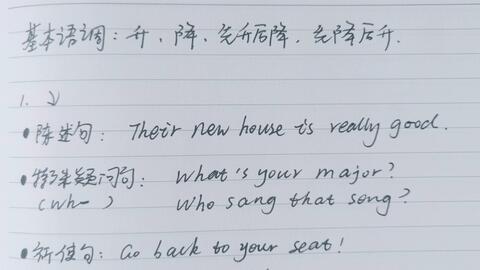 基本语调：升、降、先升后降、先降后升.
1. ↘
• 陈述句： Their new house is really good.
• 特殊疑问句： What's your major?
(wh- ) Who sang that song?
• 祈使句： Go back to your seat!